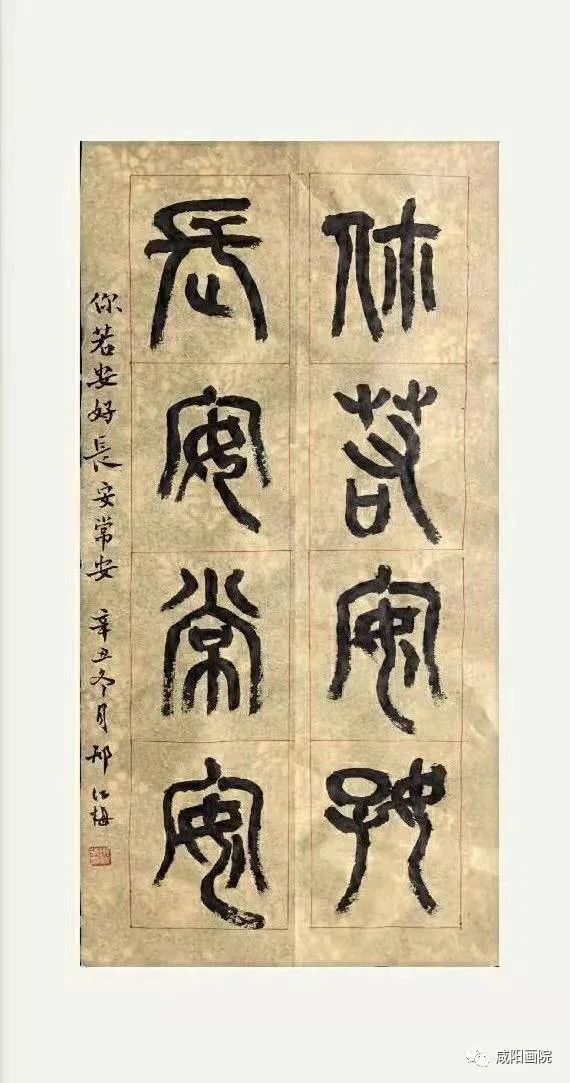 你若安好
長安常安
你若安好長安常安 辛丑冬月 邢梅
咸阳画院